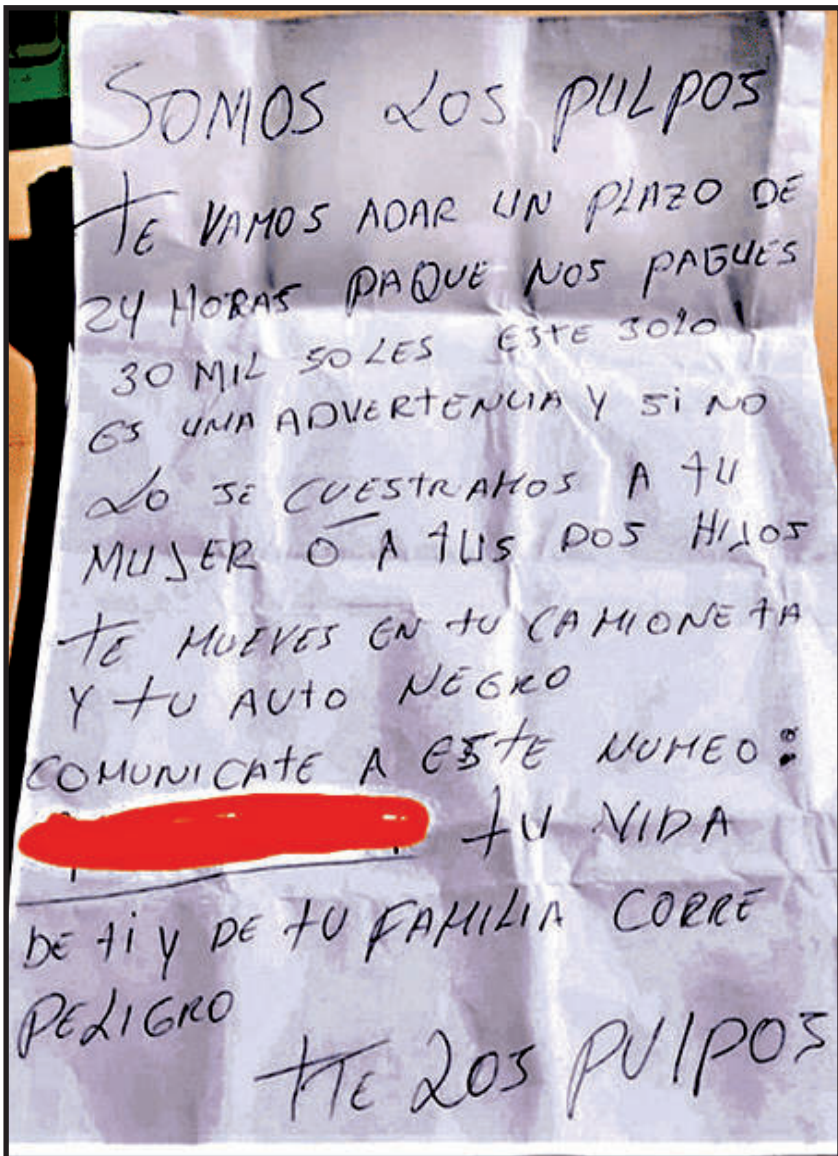 SOMOS LOS PULPOS
TE VAMOS ADAR UN PLAZO DE
24 HORAS PAQUE NOS PAGUES
30 MIL SOLES ESTE SOLO
ES UNA ADVERTENCIA Y Si NO
LO SE CUESTRAMOS A TU
MUJER O A TUS DOS HIJOS
TE MUEVES EN TU CAMIONETA
Y TU AUTO NEGRO
COMUNICATE A ESTE NUMEO:
TU VIDA
DE ti Y DE TU FAMILIA CORRE
PELIGRO
ATTE LOS PULPOS